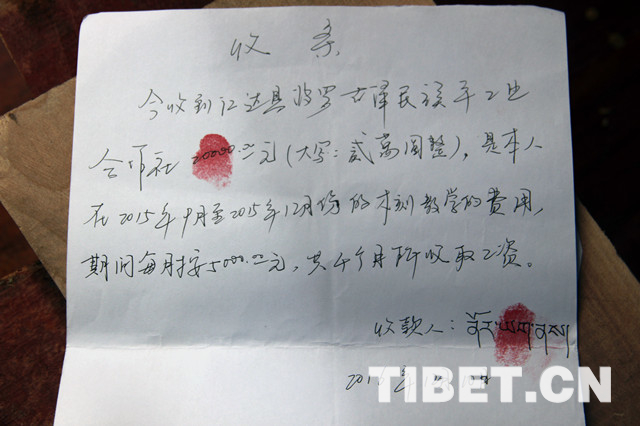 收条
今收到江达县波罗古泽民族手工业
合作社20000.00元(大写:贰萬圆整),是本人
在2015年9月至2015年12月份的木刻教学的费用,
期间每月按5000.00元,共4个月所收取工资。
收款人:
2016年
TIBET.CN